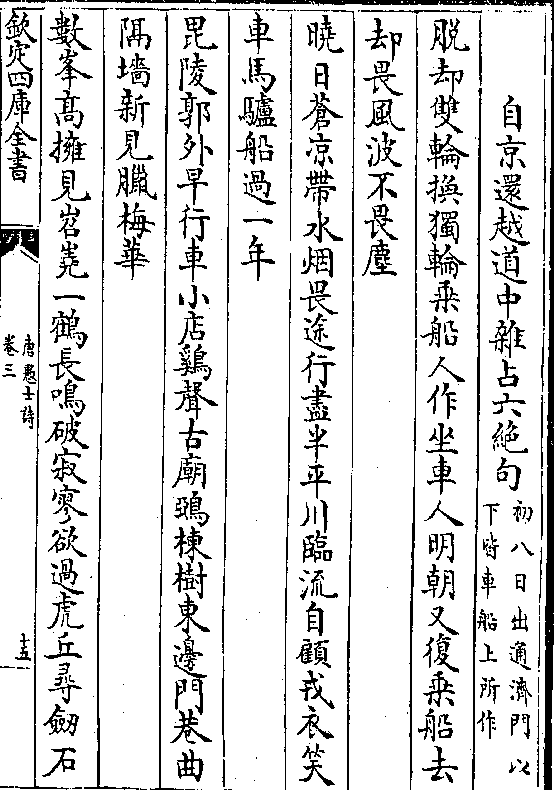 自京還越道中雜占六絶句初八日出通濟門以
下皆車船上所作
脱却雙輪換獨輪乘船人作坐車人明朝又復乘船去
却畏風波不畏塵
曉日蒼凉帶水烟畏途行盡半平川臨流自顧戎衣笑
車馬驢船過一年
毘陵郭外早行車小店鷄聲古廟鴉棟樹東邊門巷曲
隔墻新見臘梅華
數峯髙擁見岧嶤一鶴長鳴破寂寥欲過虎丘尋劒石
欽定四庫全書
唐愚士詩
卷三
十五